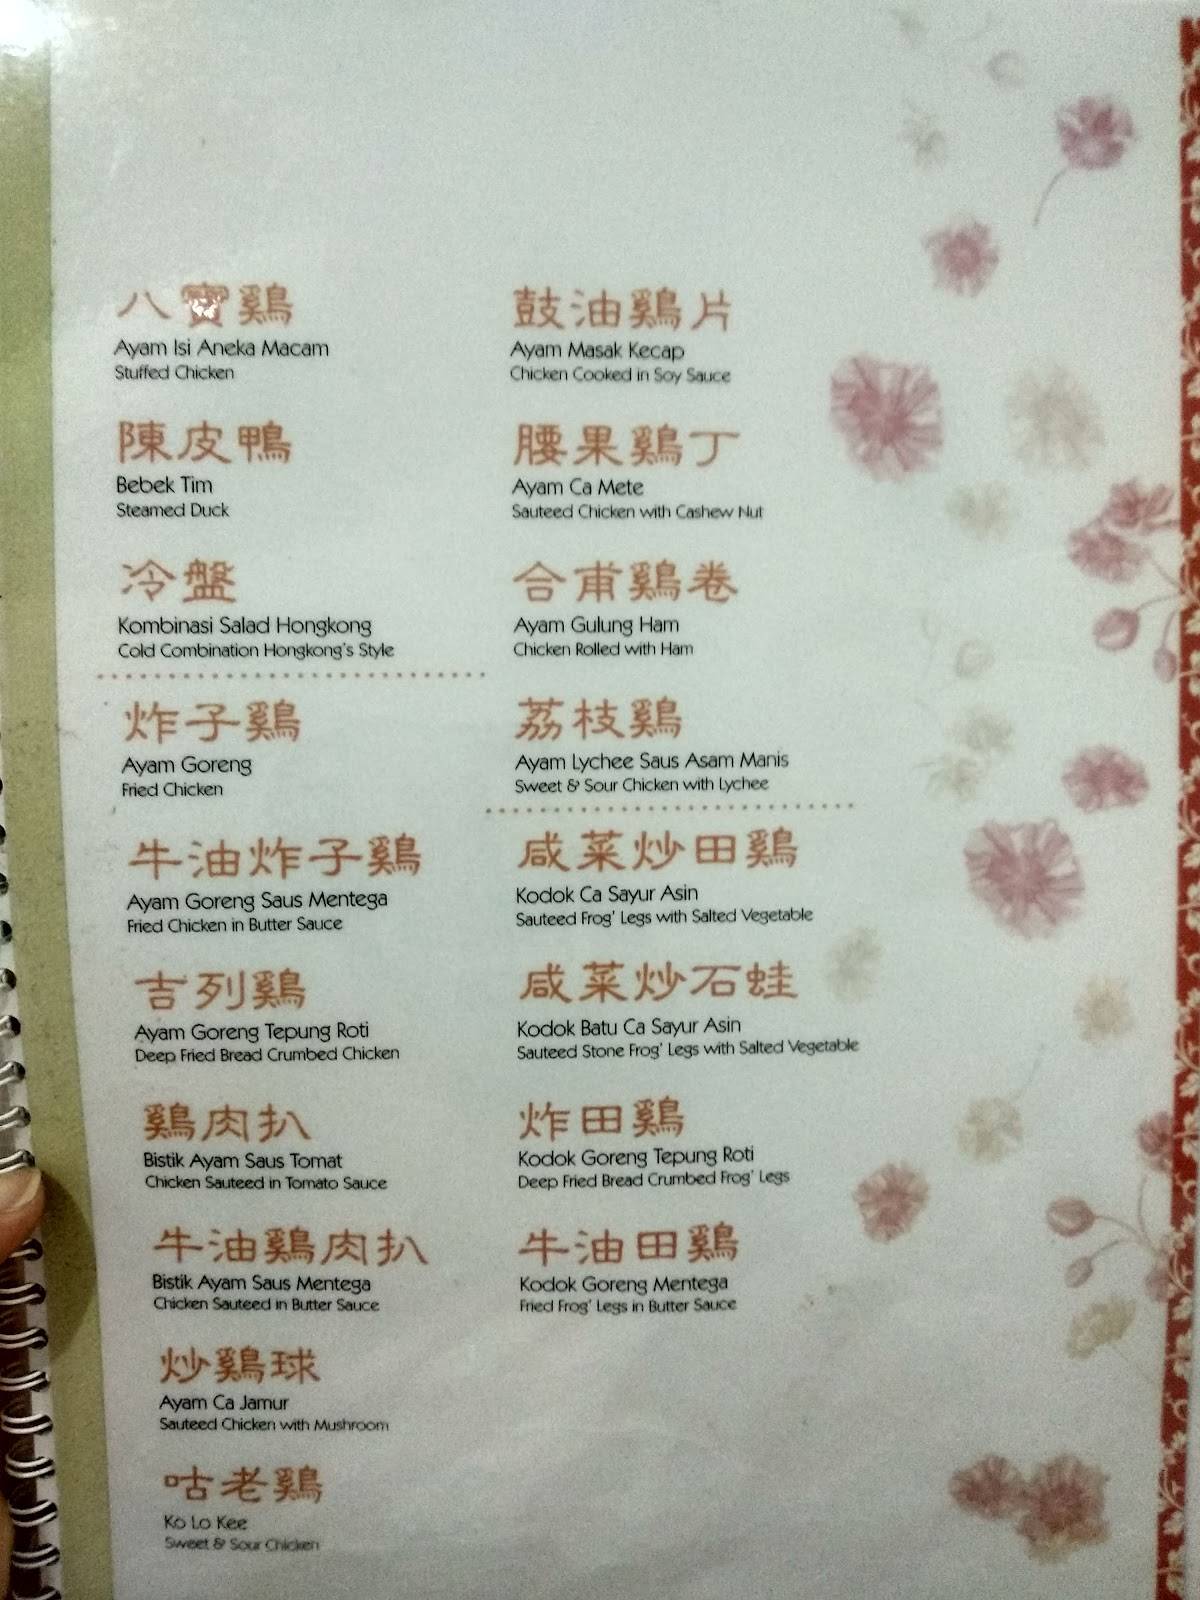 八寶鷄
Ayam Isi Aneka Macam
Stuffed Chicken
陳皮鴨
Bebek Tim
Steamed Duck
冷盤
Kombinasi Salad Hongkong
Cold Combination Hongkong's Style
炸子鷄
Ayam Goreng
Fried Chicken
牛油炸子鷄
Ayam Goreng Saus Mentega
Fried Chicken in Butter Sauce
吉列鷄
Ayam Goreng Tepung Roti
Deep Fried Bread Crumbed Chicken
鷄肉扒
Bistik Ayam Saus Tomat
Chicken Sauteed in Tomato Sauce
牛油鷄肉扒
Bistik Ayam Saus Mentega
Chicken Sauteed in Butter Sauce
炒鷄球
Ayam Ca Jamur
Sauteed Chicken with Mushroom
咕老鷄
Ko Lo Kee
Sweet & Sour Chicken
鼓油鷄片
Ayam Masak Kecap
Chicken Cooked in Soy Sauce
腰果鷄丁
Ayam Ca Mete
Sauteed Chicken with Cashew Nut
合甫鷄卷
Ayam Gulung Ham
Chicken Rolled with Ham
荔枝鷄
Ayam Lychee Saus Asam Manis
Sweet & Sour Chicken with Lychee
咸菜炒田鷄
Kodok Ca Sayur Asin
Sauteed Frog' Legs with Salted Vegetable
咸菜炒石蛙
Kodok Batu Ca Sayur Asin
Sauteed Stone Frog' Legs with Salted Vegetable
炸田鷄
Kodok Goreng Tepung Roti
Deep Fried Bread Crumbed Frog' Legs
牛油田鷄
Kodok Goreng Mentega
Fried Frog' Legs in Butter Sauce